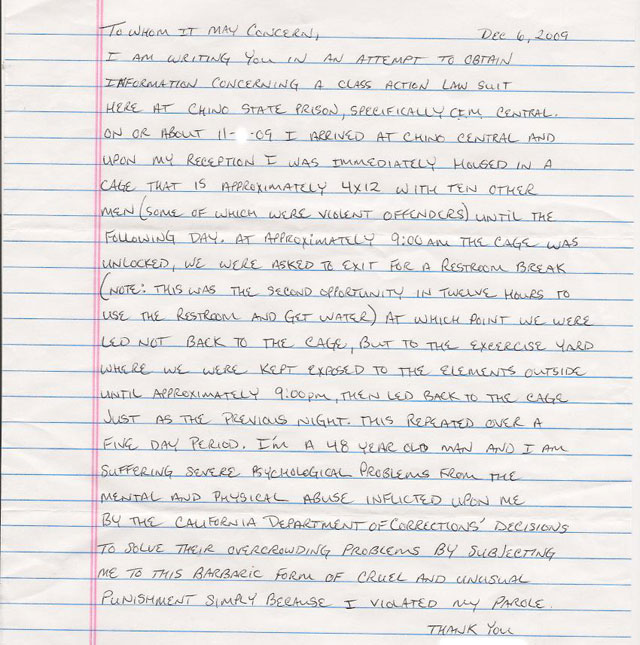 To Whom It May Concern, Dec 6, 2009
I am writing you in an attempt to obtain
information concerning a class action law suit
here at Chino State Prison, specifically C.I.M. Central.
On or about 11- -09 I arrived at Chino Central and
upon my reception I was immediately housed in a
cage that is approximately 4x12 with ten other
men (some of which were violent offenders) until the
following day. At approximately 9:00am the cage was
unlocked, we were asked to exit for a restroom break
(note: this was the second opportunity in twelve hours to
use the restroom and get water) at which point we were
led not back to the cage, but to the excercise yard
where we were kept exposed to the elements outside
until approximately 9:00pm, then led back to the cage
just as the previous night. This repeated over a
five day period. I'm a 48 year old man and I am
suffering severe psychological problems from the
mental and physical abuse inflicted upon me
by the California Department of Corrections' decisions
to solve their overcrowding problems by subjecting
me to this barbaric form of cruel and unusual
punishment simply because I violated my parole.
Thank you